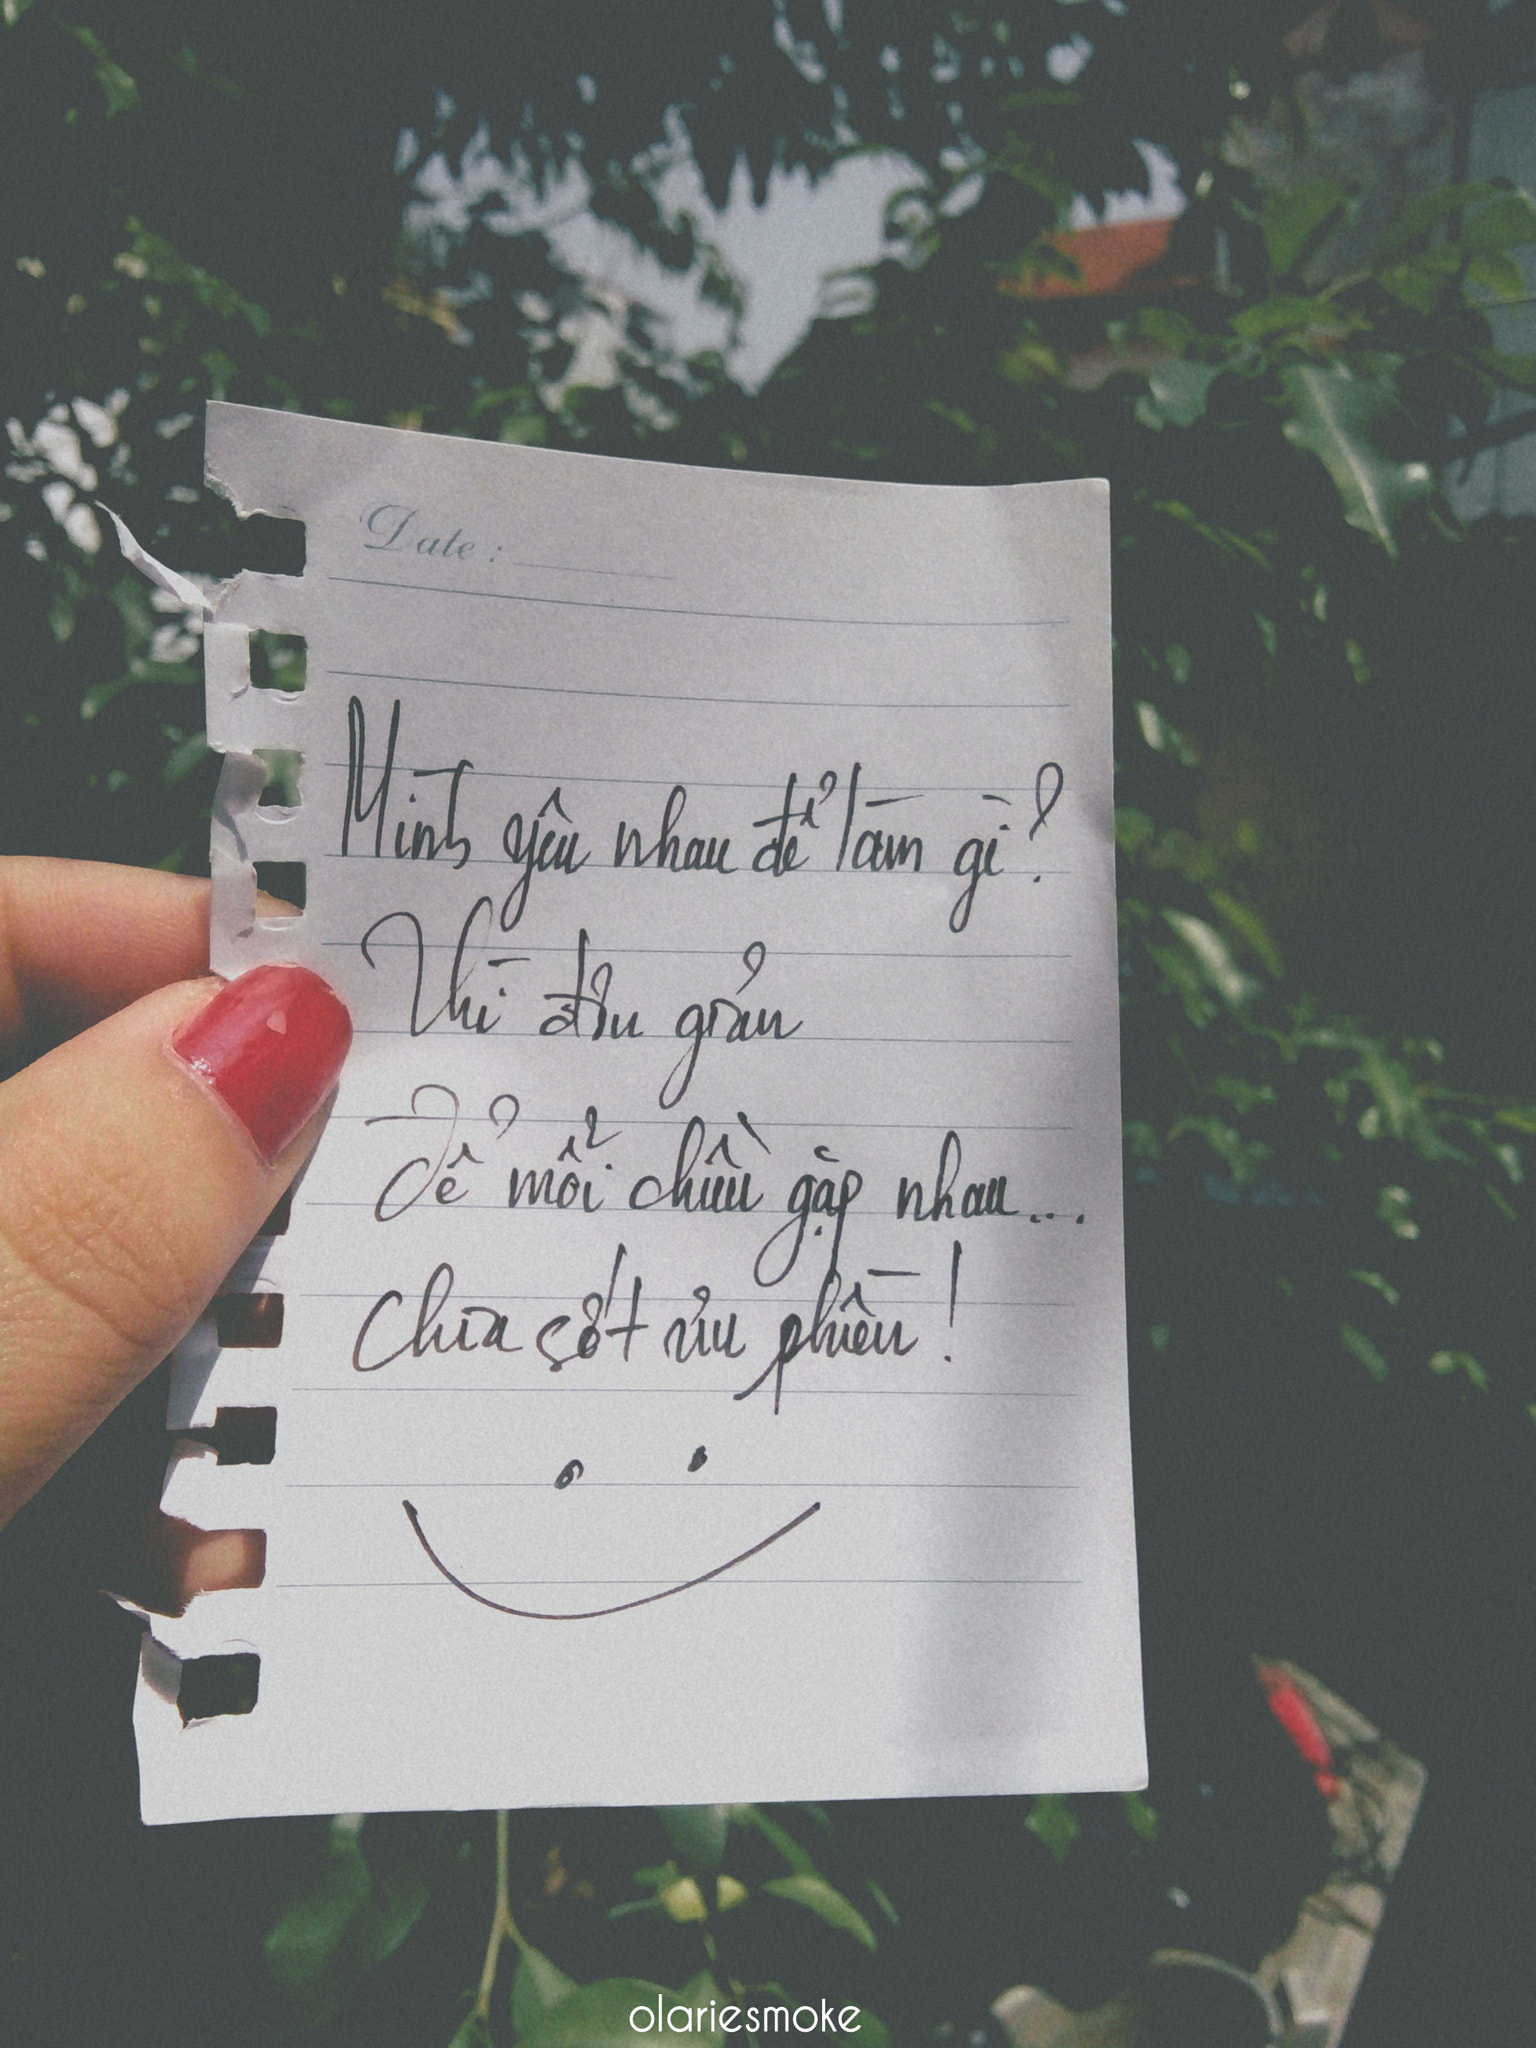 Date :
Mình yêu nhau để làm gì?
Thì đơn giản
Để mỗi chiều gặp nhau...
Chia sớt ưu phiền!
olariesmoke